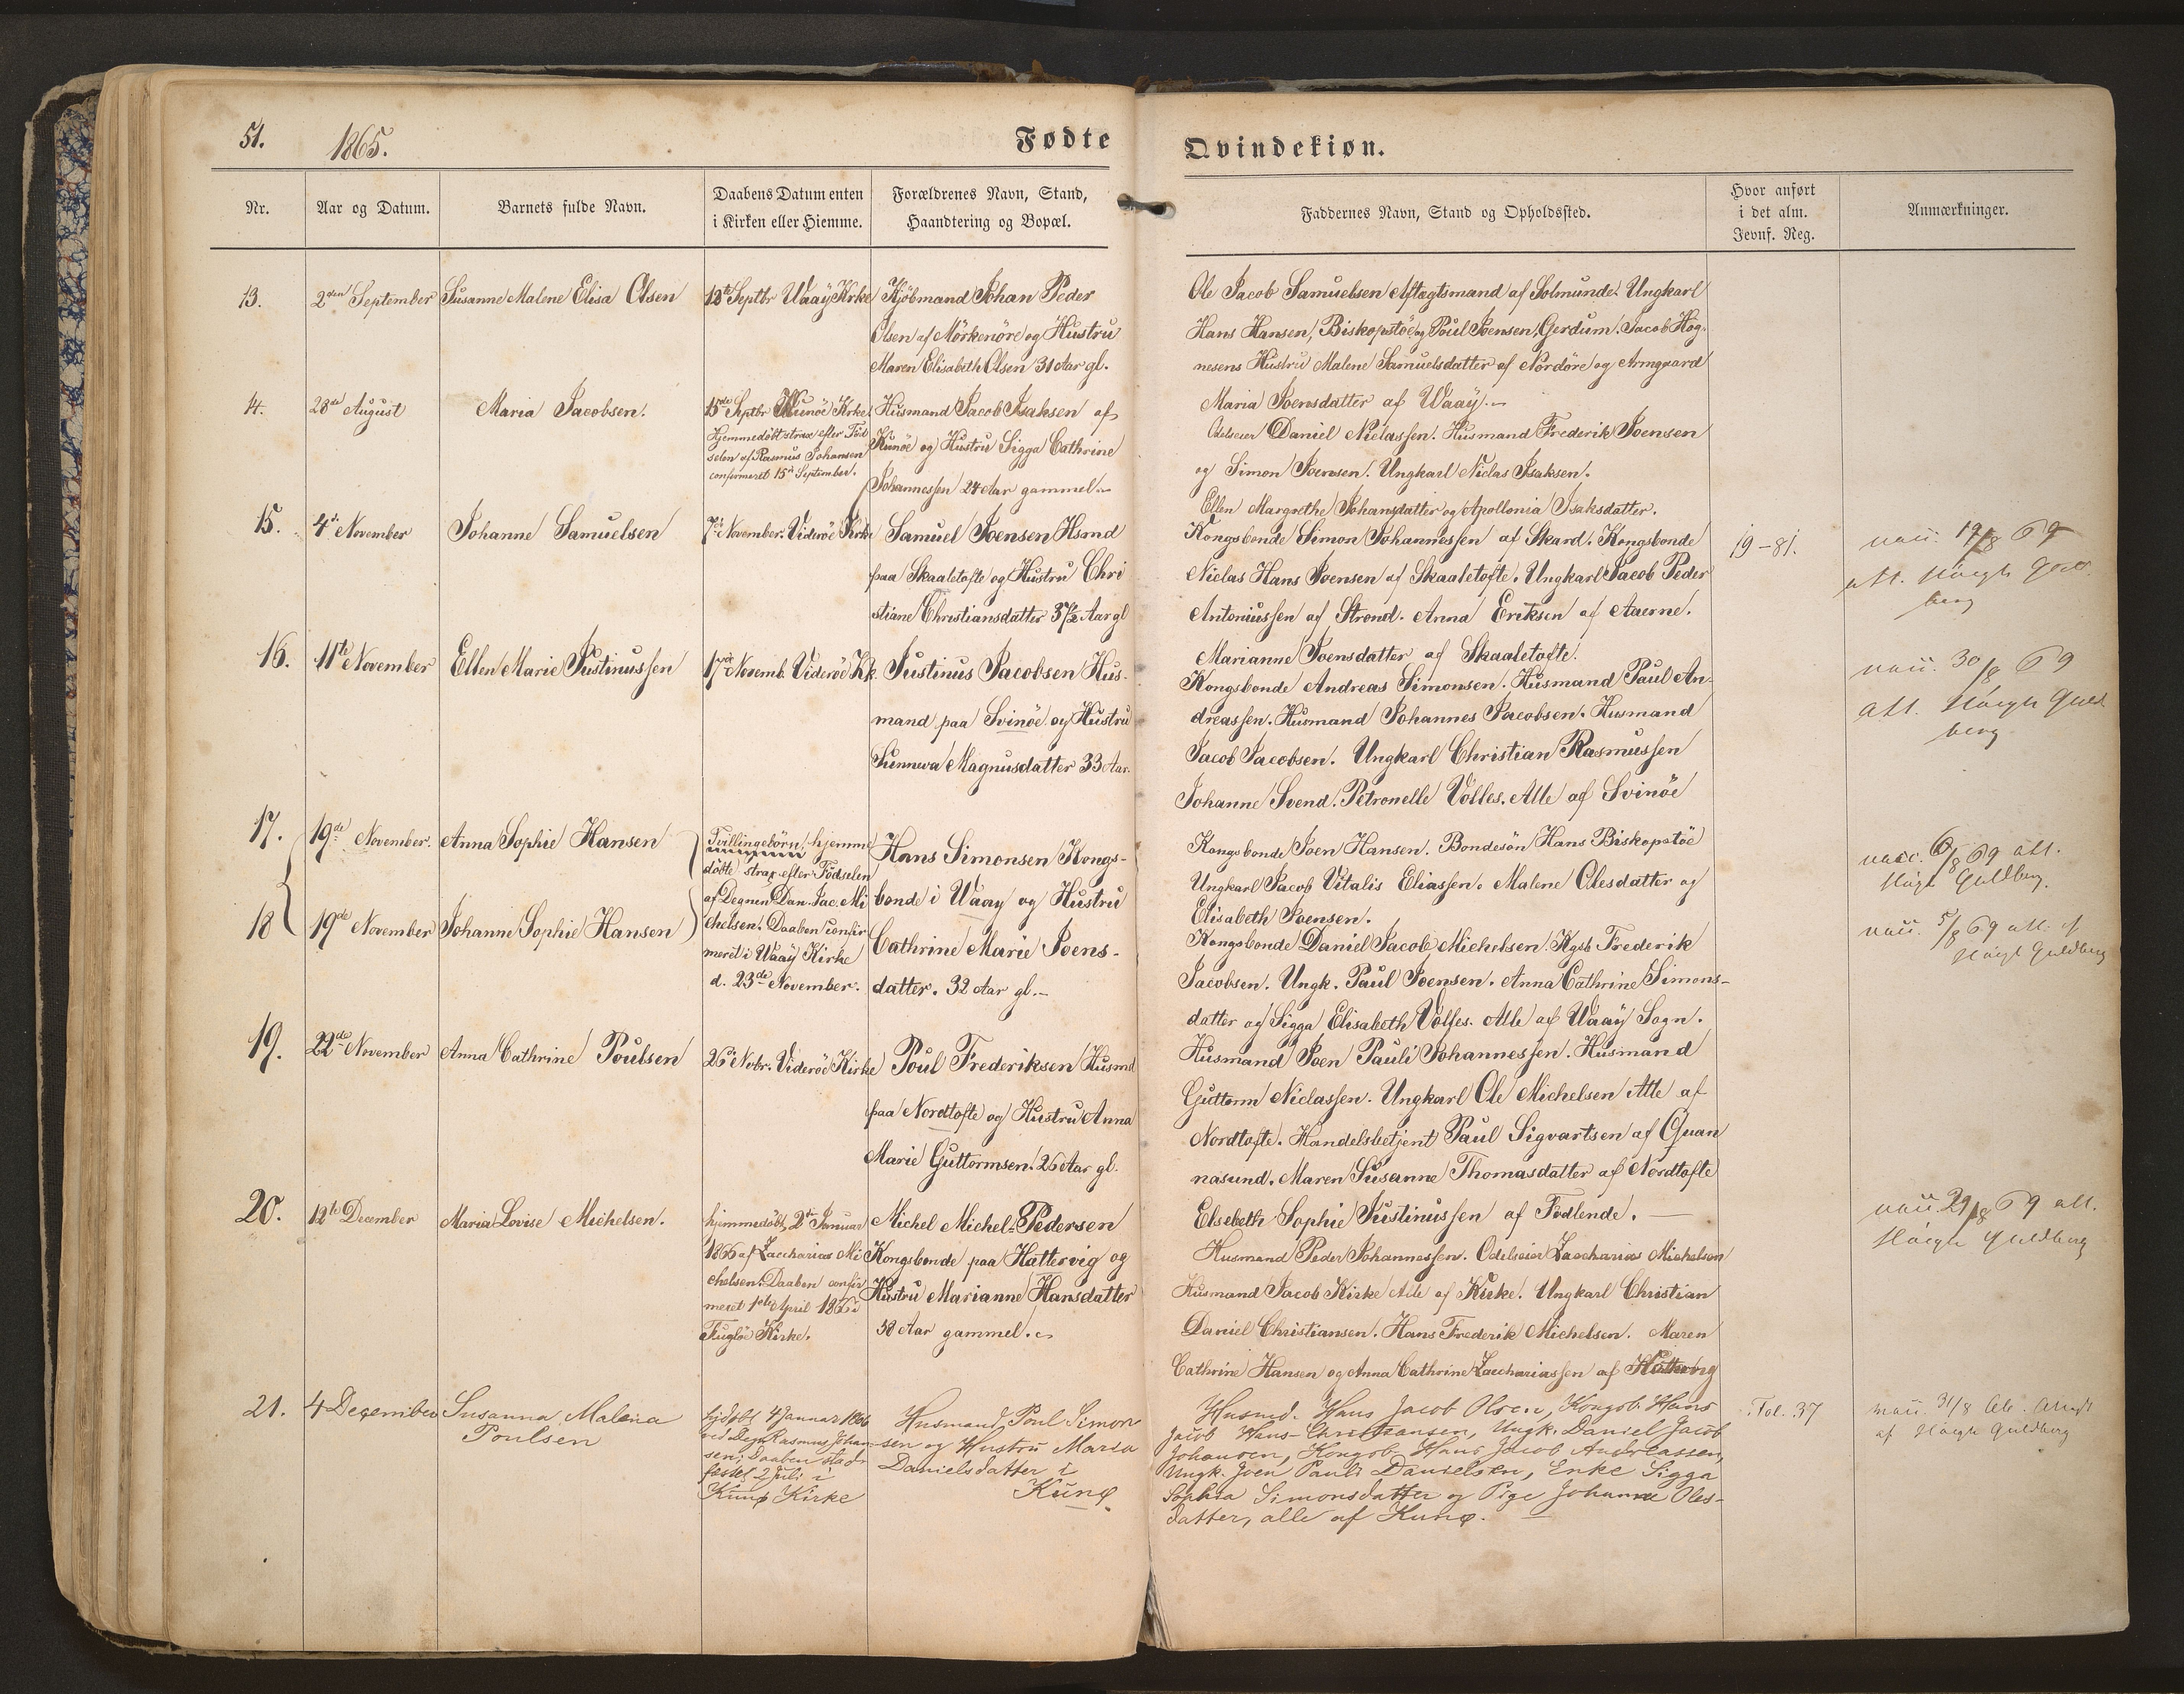 51.
1865.
Fødte
Qvindekiøn.
Nr.
Aar og Datum.
Barnets fulde Navn.
Daabens Datum enten
i Kirken eller Hiemme.
Forældrenes Navn, Stand,
Haandtering og Bopæl.
Faddernes Navn, Stand og Opholdssted.
Hvor anført
i det alm.
Jevnf. Reg.
Anmærkninger.
13.
2den September
Susanne Malene Elisa Olsen
Septbr Waaÿ Krke
Kjöbmand Johan Peder
Olsen af Mörkenöre og Hustru
Maren Elisabeth Olsen 31 Aar gl.
Ole Jacob Samuelsen Aftægtsmand af Solmunde. Ungkarl
Hans Hansen, Biskopstöe og Poul Joensen, Gerdum. Jacob Hog-
nesens Hustru Malene Samuelsdatter af Nordöre og Armgaard
Maria Joensdatter af Waaÿ.
14.
28de August
Maria Jacobsen.
15de Septbr Kunöe Krke
Hjemmedöbt strax efter Föd
selen af Rasmus Johansen
confirmeret 15de September.
Husmand Jacob Isaksen af
Kunöe og Hustru Sigga Cathrine
Johannessen 24 Aar gammel.
Odelseier Daniel Niclassen. Husmand Frederik Joensen
og Simon Joensen. Ungkarl Niclas Isaksen.
Ellen Margrethe Johansdatter og Apollonia Isaksdatter.
15.
4de November
Johanne Samuelsen
7de November. Videröe Krke
Samuel Joensen Hsmd
paa Skaaletofte og Hustru Chri
stiane Christiansdatter 37½ Aar gl
Kongsbonde Simon Johannessen af Skard. Kongsbonde
Niclas Hans Joensen af Skaaletofte. Ungkarl Jacob Peder
Antoniussen af Strond. Anna Eriksen af Aaerne.
Marianne Joensdatter af Skaaletofte.
19-81.
19/8 69
att. Höegh Guld
berg
16.
11te November
Ellen Marie Justinussen
17de Novemb. Videröe Kk.
Justinus Jacobsen Hus-
mand paa Svinöe og Hustru
Sunneva Magnusdatter 33 Aar.
Kongsbonde Andreas Simonsen. Husmand Paul An-
dreassen. Husmand Johannes Jacobsen. Husmand
Jacob Jacobsen. Ungkarl Christian Rasmussen
Johanne Svend. Petronelle Volles. Alle af Svinöe
30/8 69
att. Höegh Guld
berg
17.
19de November.
Anna Sophie Hansen
Tvillingebörn, hjemme
döbte strax efter Födselen
af Degnen Dan. Jac. Mi
chelsen. Daaben confir
meret i Waaÿ Kirke
d. 23de November.
Hans Simonsen Kongs-
bonde i Waay og Hustru
Cathrine Marie Joens-
datter. 32 Aar gl.
Kongsbonde Joen Hansen. Bondesön Hans Biskopstöe
Ungkarl Jacob Vitalis Eliassen. Malene Olesdatter og
Elisabeth Joensen.
6/8 69 att.
Högh Guldberg.
18
19de November
Johanne Sophie Hansen
Kongsbonde Daniel Jacob Michelsen. Kgsb Frederik
Jacobsen. Ungk. Paul Joensen. Anna Cathrine Simons-
datter og Sigga Elisabeth Volles. Alle af Waaÿ Sogn.
5/8 69 att. af
Högh Guldberg
19.
22de November
Anna Cathrine Poulsen
26de Novbr. Videröe Kirke
Poul Frederiksen Husmd
paa Nordtofte og Hustru Anna
Marie Guttormsen. 26 Aar gl.
Husmand Joen Pauli Johannessen. Husmand
Guttorm Niclassen. Ungkarl Ole Michelsen Alle af
Nordtofte. Handelsbetjent Paul Sigvartsen af Quan
nasund. Maren Susanne Thomasdatter af Nordtofte
Elsebeth Sophie Justinussen af Fodlende.
20.
12te December
Maria Lovise Michelsen.
hjemmedöbt 2de Januar
1866 af Zaccharias Mi
chelsen. Daaben confir
meret 1ste April 1866 i
Fuglöe Kirke.
Michel Michel Pedersen
Kongsbonde paa Hattervig og
Hustru Marianne Hansdatter
38 Aar gammel.
Husmand Peder Johannessen. Odelseier Zaccharias Michelsen
Husmand Jacob Kirke Alle af Kirke. Ungkarl Christian
Daniel Christiansen. Hans Frederik Michelsen. Maren
Cathrine Hansen og Anna Cathrine Zacchariassen af Hattervig
29/8 69 att.
Höegh Guldberg
21.
4 December
Susanna Malena
Poulsen
hjdøbt 4 Januar 1866
ved Degn Rasmus Johan
sen; Daaben stad-
fæstet 2 Juli i
Kunø Kirke
Husmand Poul Simon
sen og Hustru Maria
Danielsdatter i
Kunø.
Husmd. Hans Jacob Olsen, Kongsb. Hans
Jacob Hans-Christiansen, Ungk. Daniel Jacob
Johansen, Kongsb. Hans Jacob Andreassen,
Ungk. Joen Pauli Danielsen, Enke Sigga
Sophia Simonsdatter og Pige Johanne Oles-
datter, alle af Kunø.
Fol. 37
31/8
af Höegh Guldberg